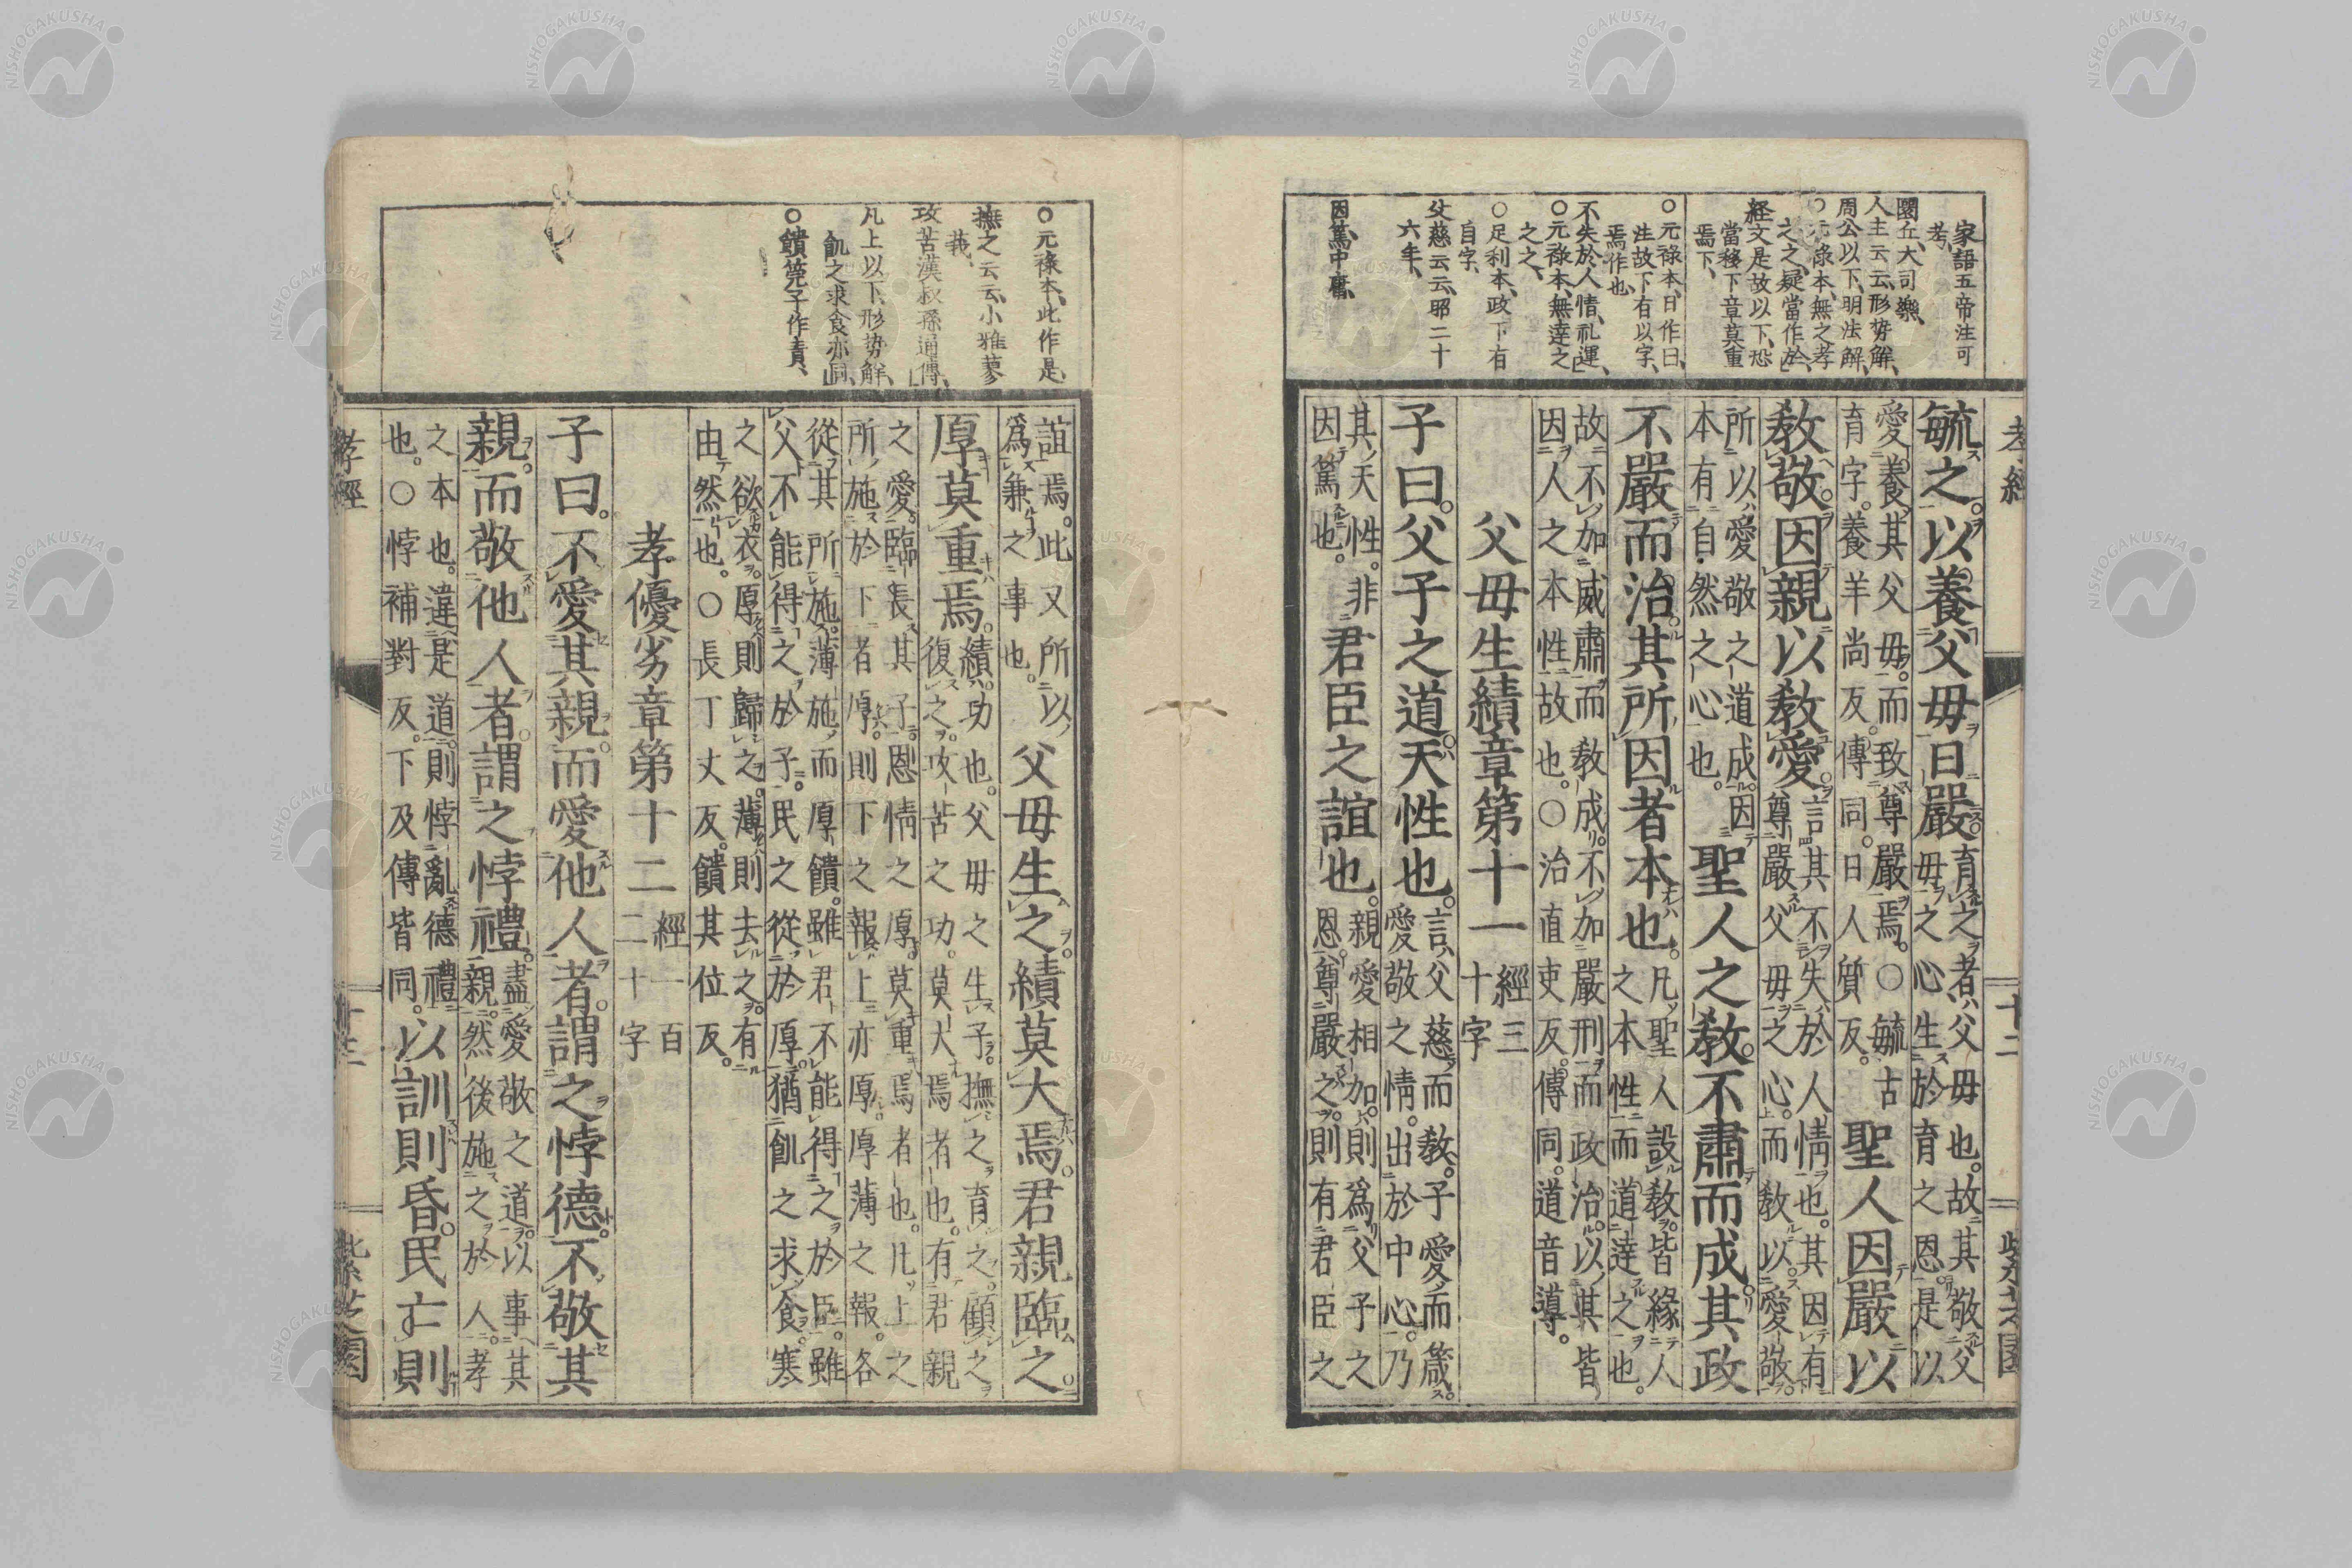 家語五帝注可
考、
圜丘、大司樂、
人主云云、形勢解、
周公以下、明法解、
○元祿本、無之孝
之之、疑當作於、
経文是故以下、恐
當移下章莫重
焉下、
○元祿本、日作曰、
注故下有以字、
焉作也、
不失於人情、礼運、
○元祿本、無達之
之之、
○足利本、政下有
自字、
父慈云云、昭二十
六年、
因篤、中庸、
孝經
十二
紫芝園
毓之。以養父母日嚴。育之者、父母也。故其敬父
母之心、生於育之恩。是以
愛養其父母。而致尊嚴焉。○毓古
育字。養羊尚反。傳同。日人質反。聖人因嚴以
教敬。因親以教愛。言其不失於人情也。其因有
尊嚴父母之心。而教以愛敬。
所以愛敬之道成。因
本有自然之心也。聖人之教。不肅而成。其政
不嚴而治。其所因者本也。凡聖人設教。皆緣人
之本性。而道達之也。
故不加威肅而教成。不加嚴刑而政治。以其皆
因人之本性故也。○治直吏反。傳同。道音導。
父母生績章第十一 經三
十字
子曰。父子之道。天性也。言父慈而教。子愛而箴。
愛敬之情。出於中心。乃
其天性。非
因篤也。君臣之誼也。親愛相加。則爲父子之
恩。尊嚴之。則有君臣之
○元祿本、此作是、
撫之云云、小雅蓼
莪、
攻苦、漢叔孫通傳、
凡上以下、形勢解、
飢之求食亦同、
○饋筦子作責、
誼焉。此又所以
爲兼之事也。父母生之。績莫大焉。君親臨之。
厚莫重焉。績、功也。父母之生子。撫之育之。顧之
復之。攻苦之功。莫大焉者也。有君親
之愛。臨長其子。恩情之厚。莫重焉者也。凡上之
所施於下者厚。則下之報上亦厚。厚薄之報。各
從其所施。薄施而厚饋。雖君不能得之於臣。雖
父不能得之於子。民之從於厚。猶飢之求食。寒
之欲衣。厚則歸之。薄則去之。有
由然也。○長丁丈反。饋其位反。
孝優劣章第十二 經一百
二十字
子曰。不愛其親。而愛他人者。謂之悖德。不敬其
親。而敬他人者。謂之悖禮。盡愛敬之道。以事其
親。然後施之於人。孝
之本也。違是道。則悖亂德禮
也。○悖補對反。下及傳皆同。以訓則昏。民亡則
孝經
十三
紫芝園